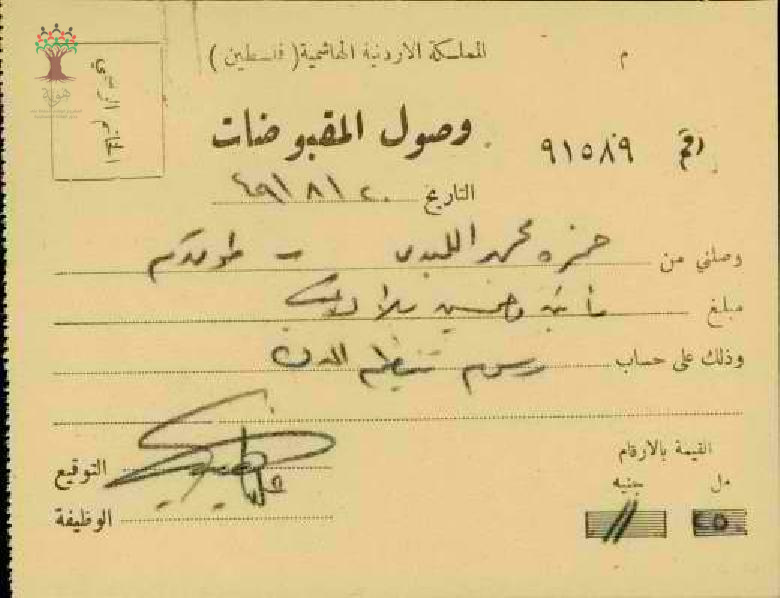 م
المملكة الاردنية الهاشمية (فلسطين)
هوية
الختم الرسمي
وصول المقبوضات
رقم ٩١٥٨٩
التاريخ ٢٠/٨/٤٩
وصلني من حمزه محمد اللبدي - طولكرم
مبلغ مائتين وخمسين ملا
وذلك على حساب رسوم تنظيم المدن
القيمة بالارقام
مل جنيه
٢٥٠ //
التوقيع
الوظيفة